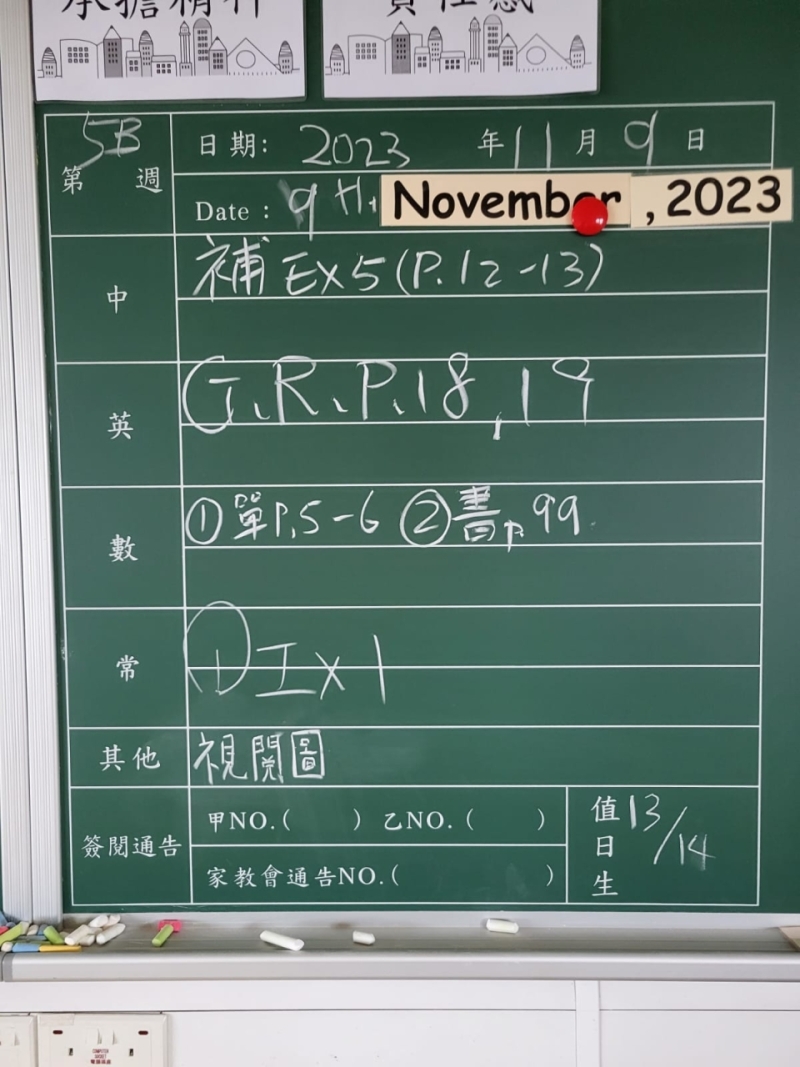 承擔精神
責任感
5B
第 週
日期: 2023 年 11 月 9 日
Date : 9 th November, 2023
中
補 Ex 5 (P.12-13)
英
G、R、P、18, 19
數
① 單 P.5-6 ② 書 p.99
常
① 工 x 1
其他
視閱圖
簽閱通告
甲NO.( ) 乙NO.( )
家教會通告NO.( )
值日生
13/14